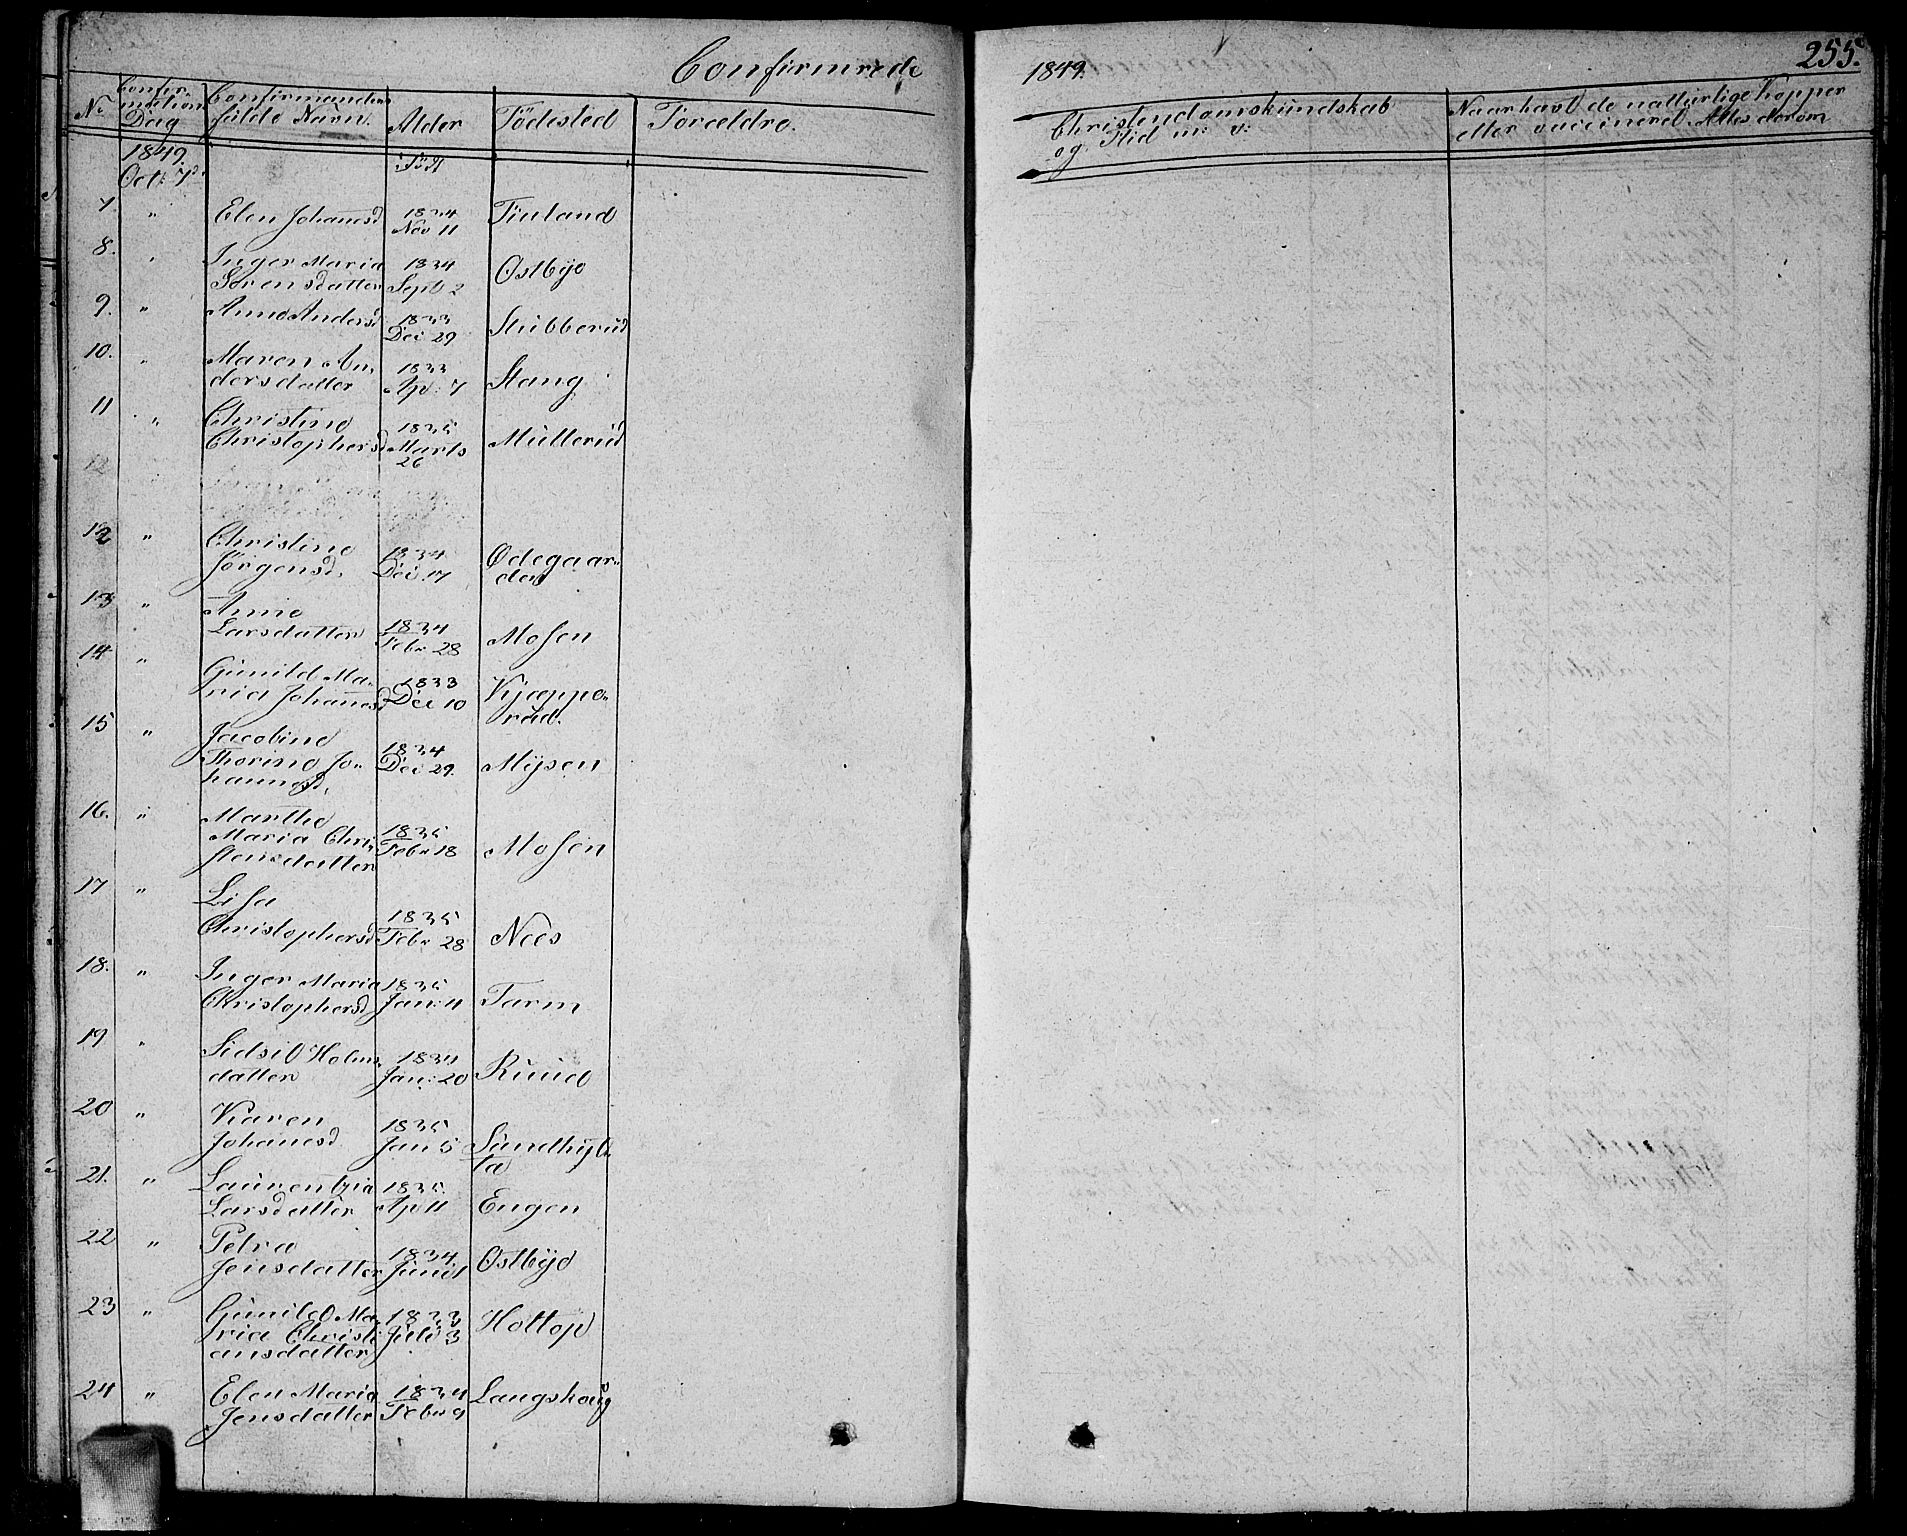 Confirmrede
1849.
255.
No
Confirmations Dag
Confirmandens fulde Navn.
Alder
Födested
Forældre.
Christendomskundskab
og Flid m: v:
Naar havt de naturlige Kopper
eller vaccineret. Attest derom
1849.
Oct: 7de
Född
7. " Elen Johanesd 1834 Nov 11 Finland
8. " Inger Maria Sørensdatter 1834 Septb 2 Østbye
9. " Anne Andersd 1833 Dec 29 Stubberud
10. " Maren Andersdatter 1833 Ap: 7 Stang
11 " Christine Christophersd 1835 Marts 26 Mullerud
12
12 " Christine Jørgensd. 1834 Dec. 17 Ødegaarden
13 " Anne Larsdatter 1834 Febr 28 Mosen
14 " Gunild Maria Johannesd 1833 Dec 10 Kjepperud.
15 " Jacobine Thorine Johannesd, 1834 Dec 29. Mysen
16. " Marthe Maria Christensdatter 1835 Febr 18 Mosen
17 " Lisa Christophersd 1835 Febr 28 Nees
18. " Inger Maria Christophersd 1835 Jan: 4 Tarm
19 " Sidsil Holmsdatter 1834 Jan: 20 Ruud
20 " Karen Johanesd 1835 Jan 5 Sundhylta
21. " Laurentzia Larsdatter 1835. Ap 11 Engen
22 " Petra Jensdatter 1834 Juni 1 Østbye
23 " Gunild Maria Christiansdatter 1833 Juli 3 Holtop
24 " Elen Maria Jensdatter 1834 Febr 9 Langskoug